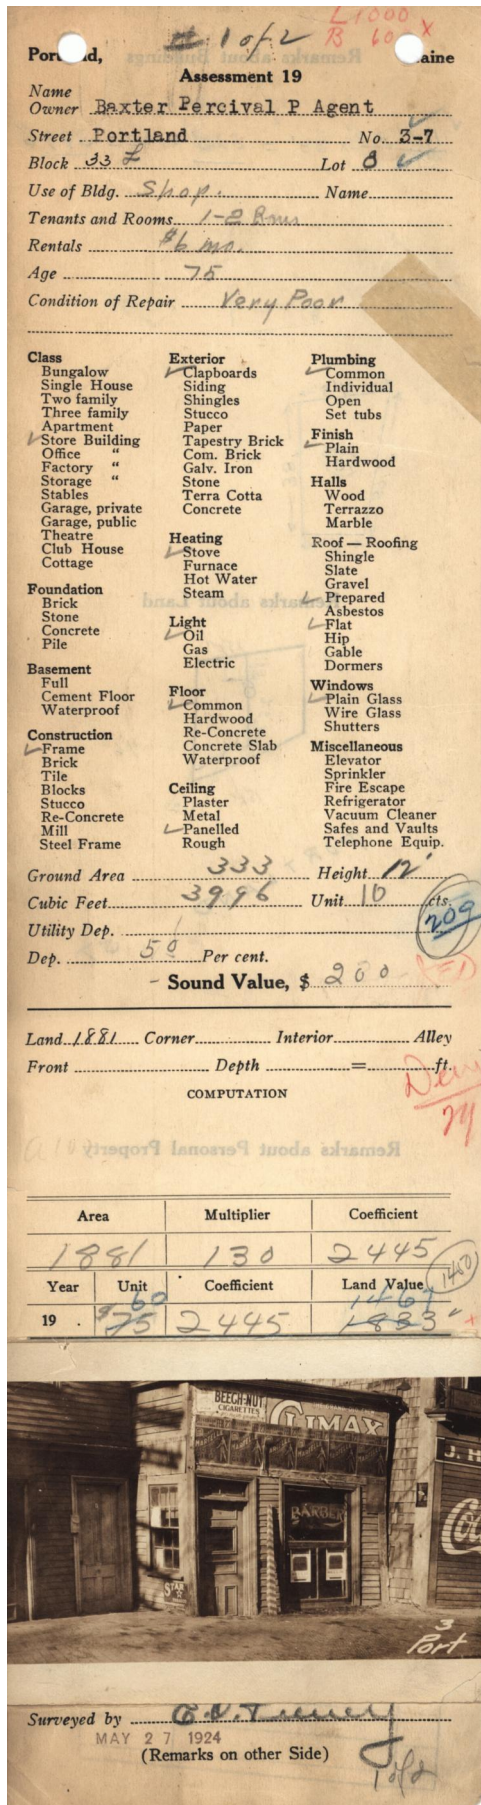 1 of 2
L 1000
B 60 X
Portland, Maine
Assessment 19
Name
Owner Baxter Percival P Agent
Street Portland No. 3-7
Block 33 L Lot 8
Use of Bldg. Shop. Name
Tenants and Rooms 1-2 Rms
Rentals $6 mo.
Age 75
Condition of Repair Very Poor
Class
Bungalow
Single House
Two family
Three family
Apartment
Store Building
Office "
Factory "
Storage "
Stables
Garage, private
Garage, public
Theatre
Club House
Cottage
Foundation
Brick
Stone
Concrete
Pile
Basement
Full
Cement Floor
Waterproof
Construction
Frame
Brick
Tile
Blocks
Stucco
Re-Concrete
Mill
Steel Frame
Exterior
Clapboards
Siding
Shingles
Stucco
Paper
Tapestry Brick
Com. Brick
Galv. Iron
Stone
Terra Cotta
Concrete
Heating
Stove
Furnace
Hot Water
Steam
Light
Oil
Gas
Electric
Floor
Common
Hardwood
Re-Concrete
Concrete Slab
Waterproof
Ceiling
Plaster
Metal
Panelled
Rough
Plumbing
Common
Individual
Open
Set tubs
Finish
Plain
Hardwood
Halls
Wood
Terrazzo
Marble
Roof — Roofing
Shingle
Slate
Gravel
Prepared
Asbestos
Flat
Hip
Gable
Dormers
Windows
Plain Glass
Wire Glass
Shutters
Miscellaneous
Elevator
Sprinkler
Fire Escape
Refrigerator
Vacuum Cleaner
Safes and Vaults
Telephone Equip.
Ground Area 333 Height 12'
Cubic Feet 3996 Unit 10 cts.
209
Utility Dep.
Dep. 50 Per cent.
Sound Value, $ 200
Land 1881 Corner Interior Alley
Front Depth = ft.
COMPUTATION
Remarks about Personal Property
Area Multiplier Coefficient
1881 130 2445
1450
Year Unit Coefficient Land Value
60 1467
19 $75 2445 1833
BEECH-NUT
CIGARETTES
CLIMAX
BARBER
STAR
J. H
Co
3
Port
Surveyed by
MAY 27 1924
(Remarks on other Side)
1 of 2